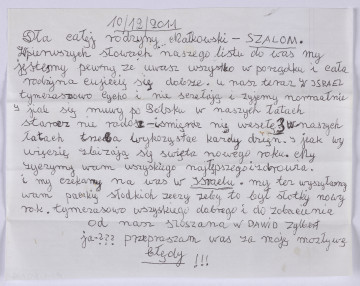 10/12/2011
Dla całej rodziny Małkowski - SZALOM.
W pierwszych słowach naszego listu do was my
jesteśmy pewny ze uwasz wszystko w porządku i cała
rodzina czujecie się dobrze. u nasz teraz W ISRAEL
tymczasowo cicho i nie strelają i żyjemy normalnie
i jak się muwy po Polsku w naszych latach
starość nie radość śmierć nie wesele w naszych
latach trzeba wykorzystać każdy dzień. i jak wy
wiecie zbliżają się święta nowego roku. My
życzymy wam wszyskiego najlepszego i zdrowia.
i my czekamy na was w Israelu. my też wysyłamy
wam paczkę słodkich rzeczy żeby to był słotki nowy
rok. tymczasowo wszyskiego dobrego i do zobaczenia
od nasz SUSZANA W DAWID
ja??? przepraszam was za moje możtywe
błędy !!!